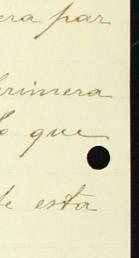 era par
primera
que
de esta